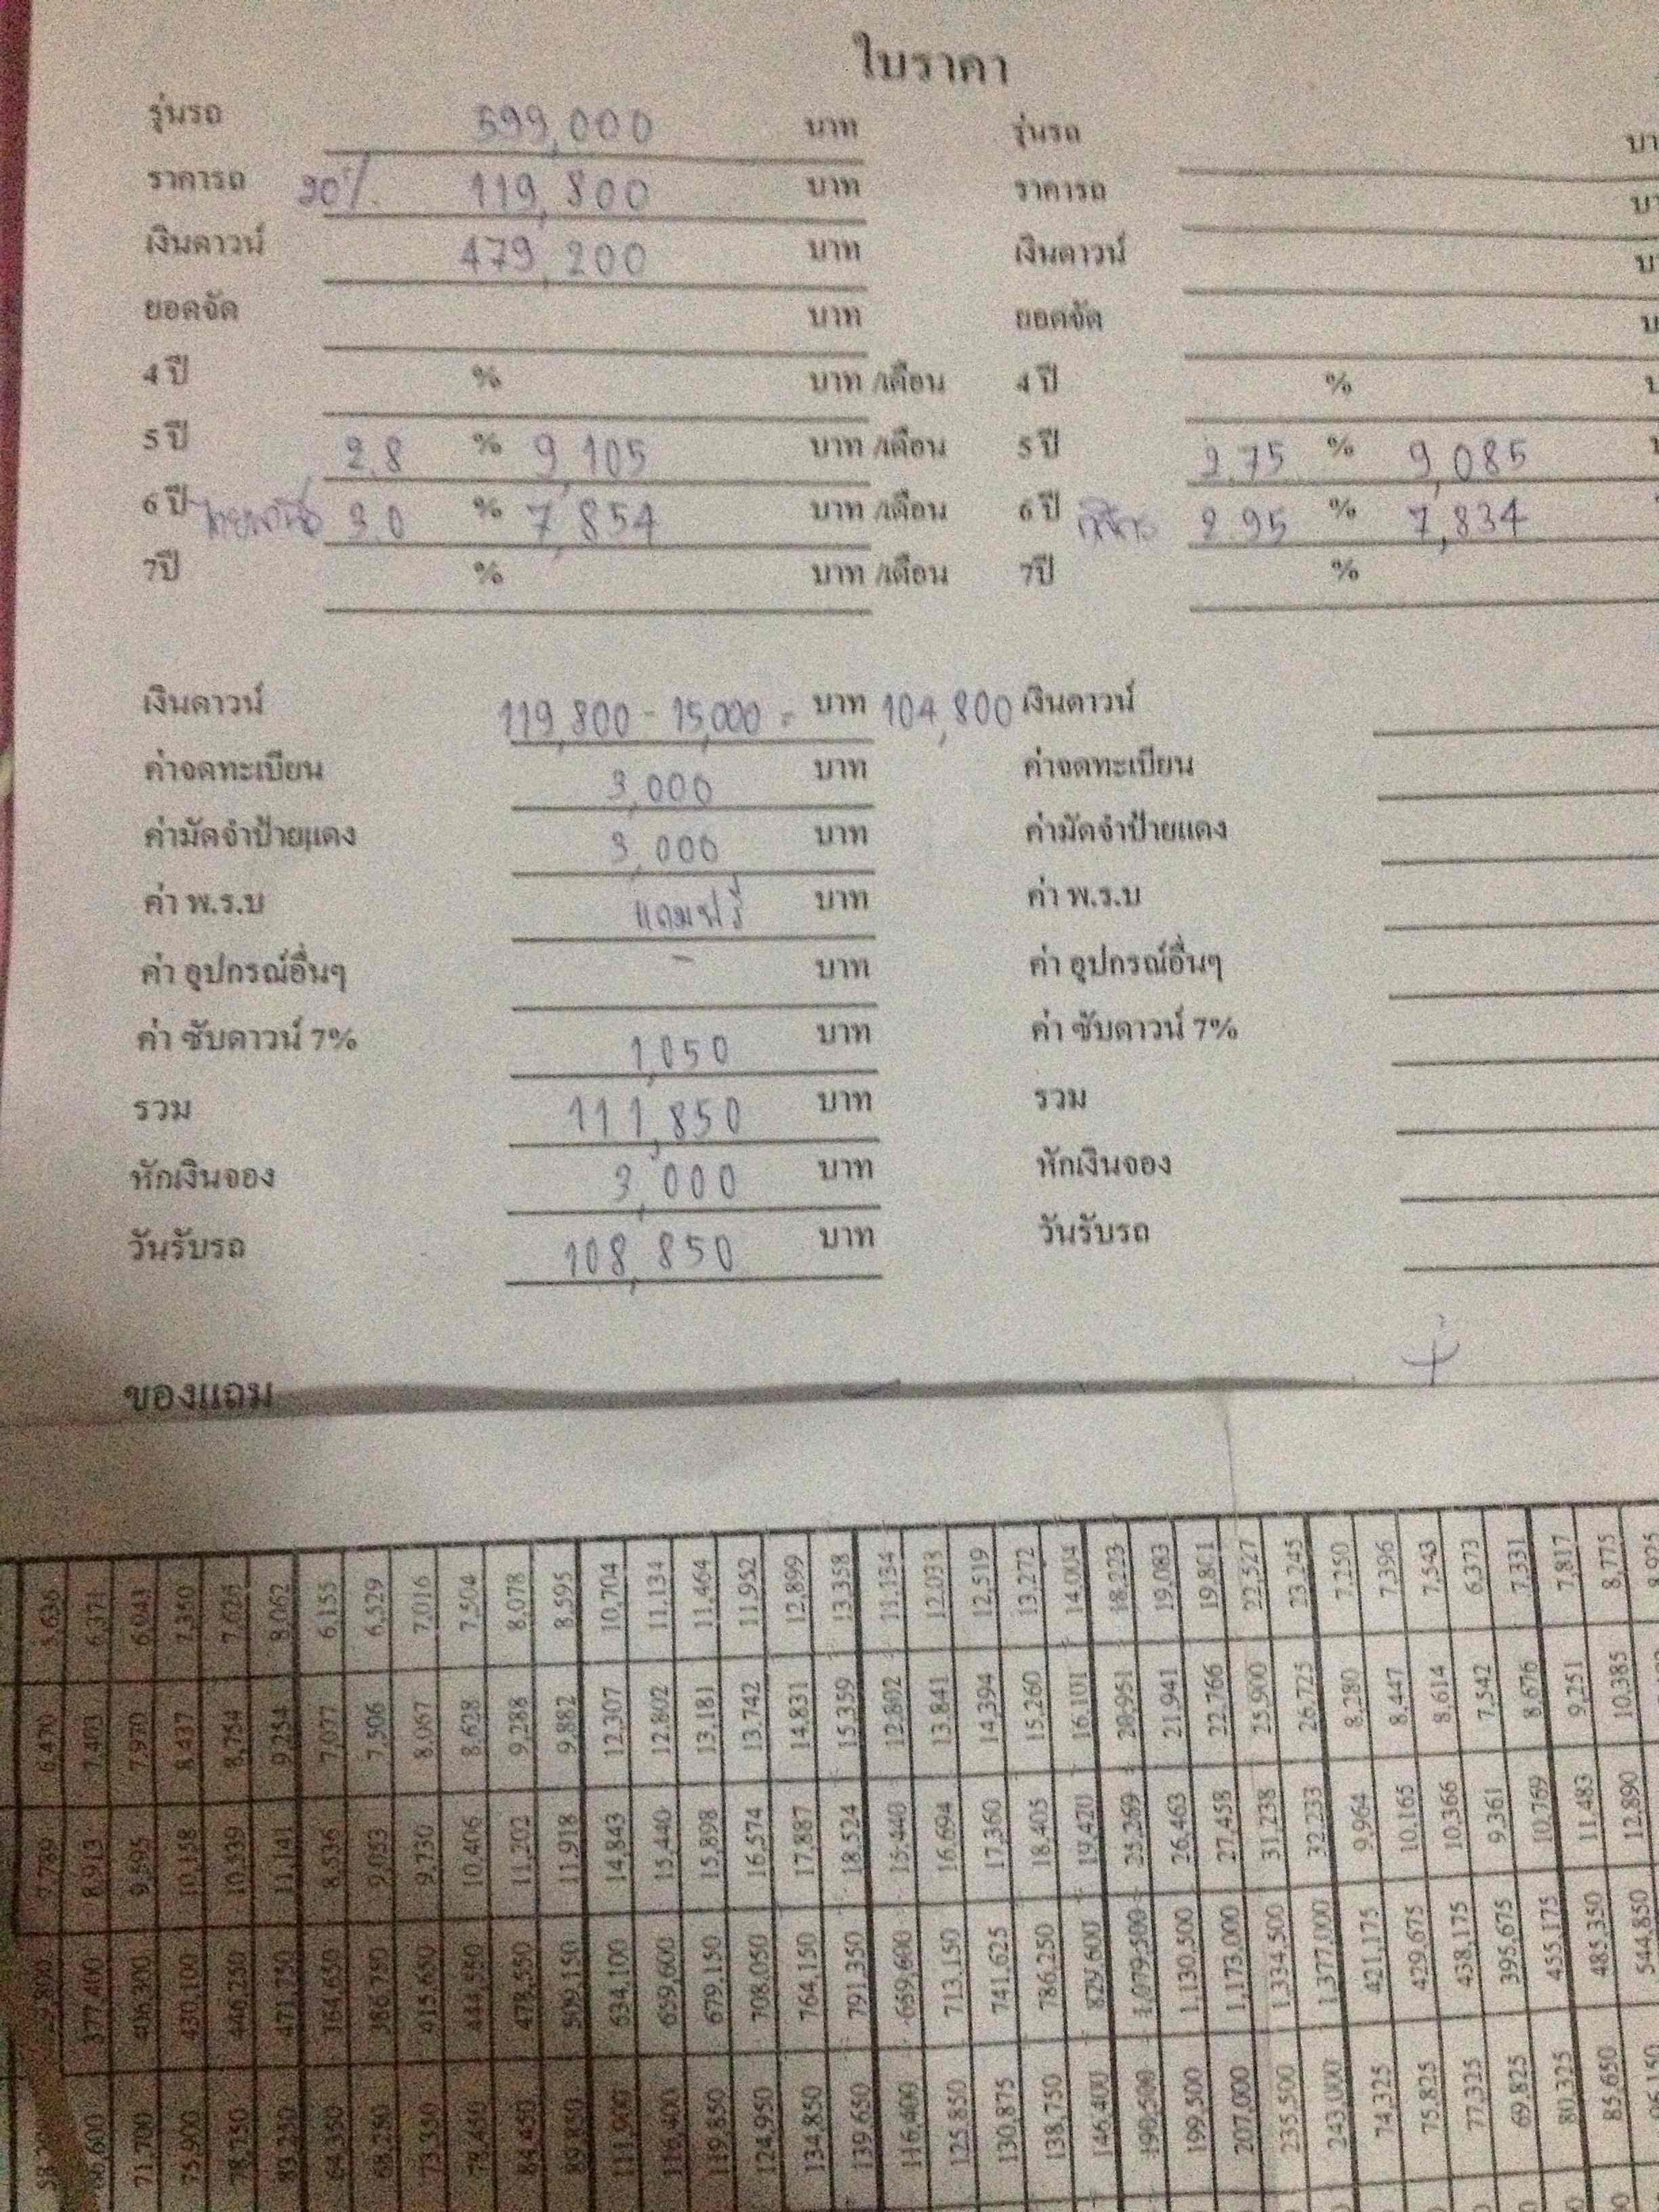 ใบราคา
รุ่นรถ 599,000 บาท รุ่นรถ
ราคารถ 20% 119,800 บาท ราคารถ
เงินดาวน์ 479,200 บาท เงินดาวน์
ยอดจัด บาท ยอดจัด
4 ปี % บาท /เดือน 4 ปี %
5 ปี 2.8 % 9,105 บาท /เดือน 5 ปี 2.75 % 9,085
6 ปี 3.0 % 7,854 บาท /เดือน 6 ปี 2.95 % 7,834
7ปี % บาท /เดือน 7ปี %
เงินดาวน์ 119,800 - 15,000 = บาท 104,800 เงินดาวน์
ค่าจดทะเบียน 3,000 บาท ค่าจดทะเบียน
ค่ามัดจำป้ายแดง 3,000 บาท ค่ามัดจำป้ายแดง
ค่า พ.ร.บ แถมฟรี บาท ค่า พ.ร.บ
ค่า อุปกรณ์อื่นๆ - บาท ค่า อุปกรณ์อื่นๆ
ค่า ซับดาวน์ 7% 1,050 บาท ค่า ซับดาวน์ 7%
รวม 111,850 บาท รวม
หักเงินจอง 3,000 บาท หักเงินจอง
วันรับรถ 108,850 บาท วันรับรถ
ของแถม
66,600 377,400 8,913 7,493 6,371
71,700 406,300 9,595 7,970 6,943
75,900 430,100 10,158 8,437 7,350
78,750 446,250 10,539 8,754 7,626
83,250 471,750 11,141 9,254 8,062
64,350 364,650 8,536 7,077 6,155
68,250 386,750 9,053 7,506 6,529
73,350 415,650 9,730 8,067 7,016
78,450 444,550 10,406 8,628 7,504
84,450 478,550 11,202 9,288 8,078
89,850 509,150 11,918 9,882 8,595
111,900 634,100 14,843 12,307 10,704
116,400 659,600 15,440 12,802 11,134
119,850 679,150 15,898 13,181 11,464
124,950 708,050 16,574 13,742 11,952
134,850 764,150 17,887 14,831 12,899
139,650 791,350 18,524 15,359 13,358
116,400 659,600 15,440 12,802 11,134
125,850 713,150 16,694 13,841 12,038
130,875 741,625 17,360 14,394 12,519
138,750 786,250 18,405 15,260 13,272
146,400 829,600 19,420 16,101 14,004
190,500 1,079,500 25,269 20,951 18,223
199,500 1,130,500 26,463 21,941 19,083
207,000 1,173,000 27,458 22,766 19,801
235,500 1,334,500 31,238 25,900 22,527
243,000 1,377,000 32,233 26,725 23,245
74,325 421,175 9,964 8,280 7,250
75,825 429,675 10,165 8,447 7,396
77,325 438,175 10,366 8,614 7,543
69,825 395,675 9,361 7,542 6,373
80,325 455,175 10,769 8,676 7,331
85,650 485,350 11,483 9,251 7,817
96,150 544,850 12,890 10,385 8,775